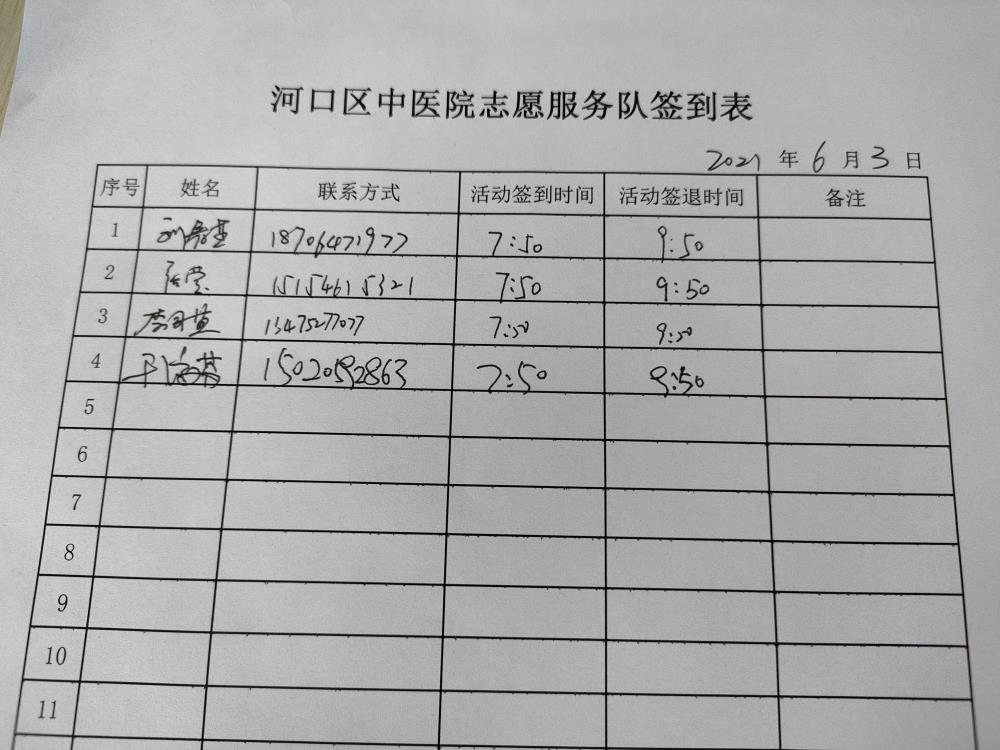 河口区中医院志愿服务队签到表
2021 年 6 月 3 日
序号 姓名 联系方式 活动签到时间 活动签退时间 备注
1 18706471977 7:50 9:50
2 张莹 15154615321 7:50 9:50
3 13475277077 7:50 9:50
4 7:50 9:50
5
6
7
8
9
10
11